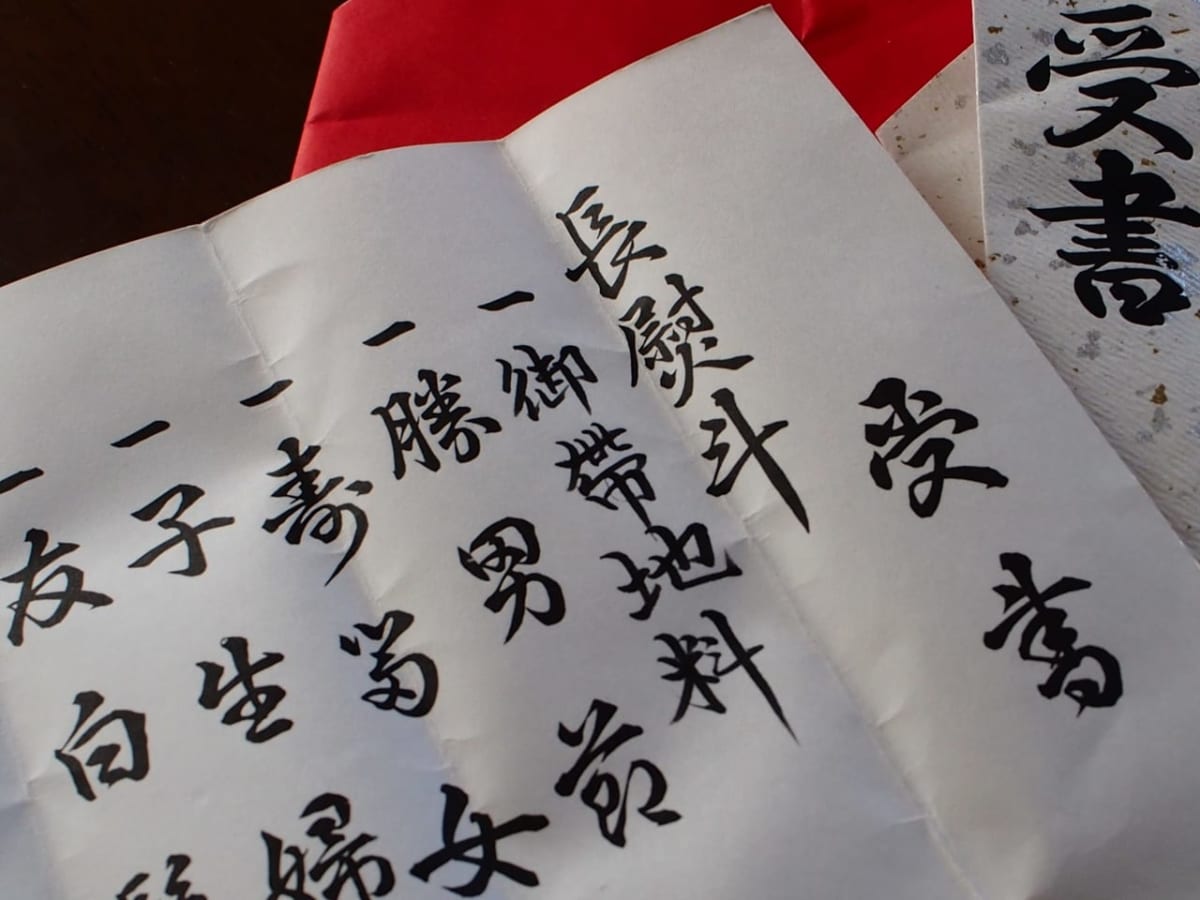 受書
受書
長熨斗
一御帯地料
一勝男節
一寿留女
一子生婦
一友白